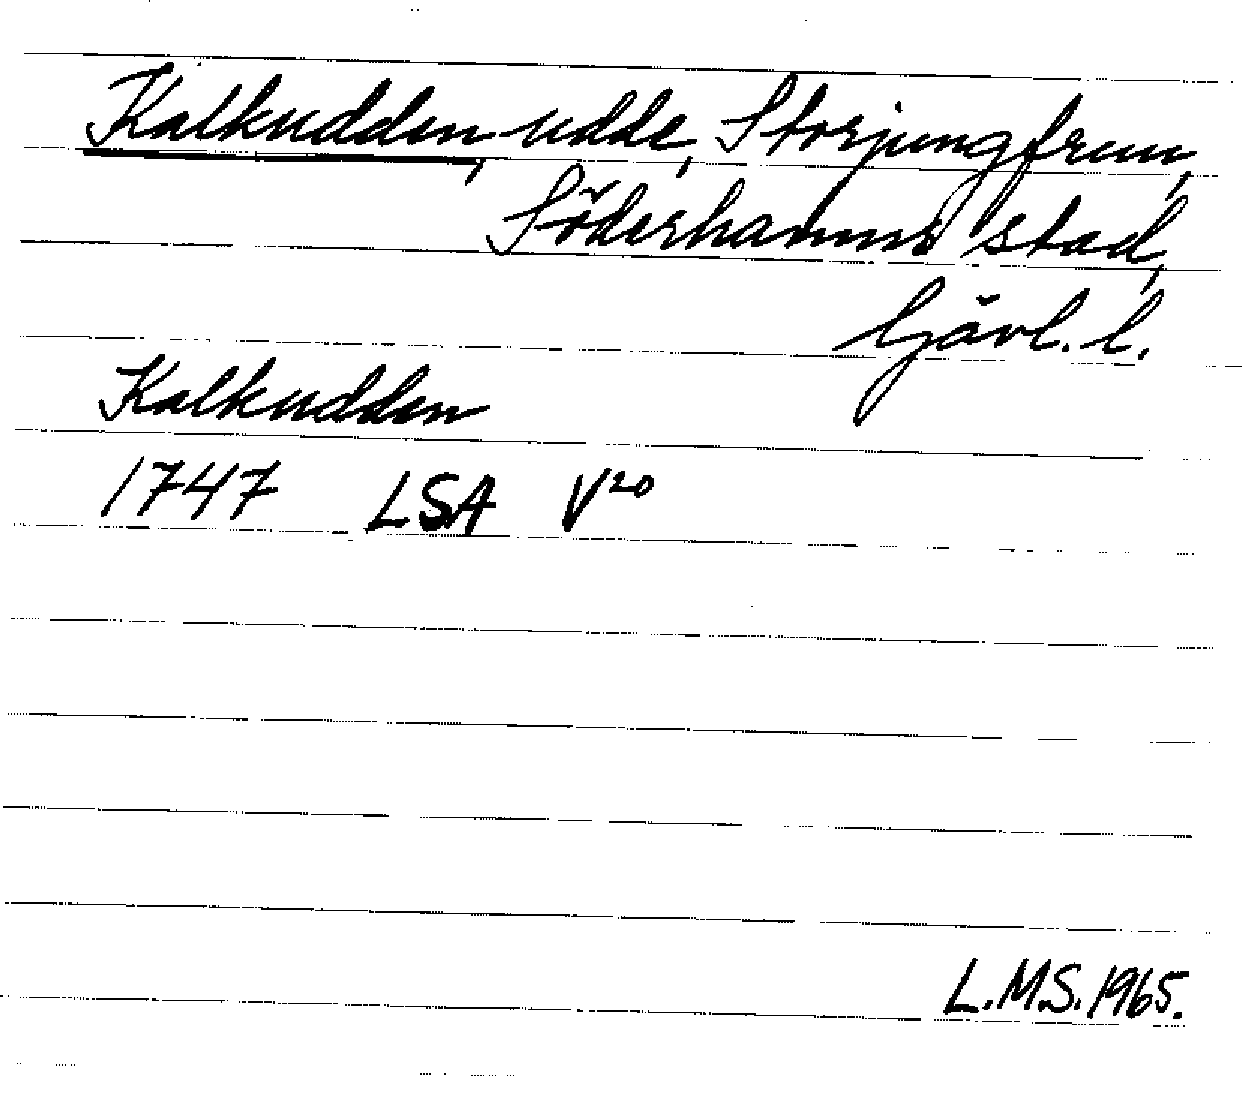 Kalkudden, udde, Storjungfrun,
Söderhamns stad,
Gävl. l.
Kalkudden
1747 LSA V²⁰
L.M.S. 1965.